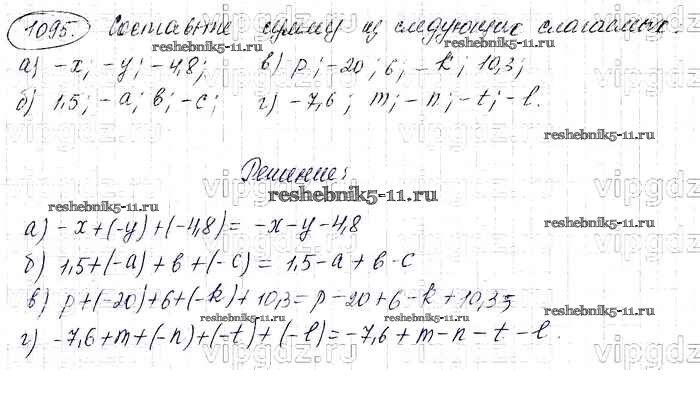 1095. Составьте сумму из следующих слагаемых.
reshebnik5-11.ru reshebnik5-11.ru
а) -x; -y; -4,8; в) p; -20; 6; -k; 10,3;
б) 1,5; -a; в; -c; г) -7,6; m; -n; -t; -l.
reshebnik5-11.ru
Решение:
vipgdz.ru vipgdz.ru
reshebnik5-11.ru
reshebnik5-11.ru
а) -x+(-y)+(-4,8)= -x-y-4,8
reshebnik5-11.ru
б) 1,5+(-a)+в+(-c)= 1,5-a+в-c
vipgdz.ru vipgdz.ru
в) p+(-20)+6+(-k)+10,3=p-20+6-k+10,3;
reshebnik5-11.ru reshebnik5-11.ru
г) -7,6+m+(-n)+(-t)+(-l)=-7,6+m-n-t-l.
vipgdz.ru vipgdz.ru